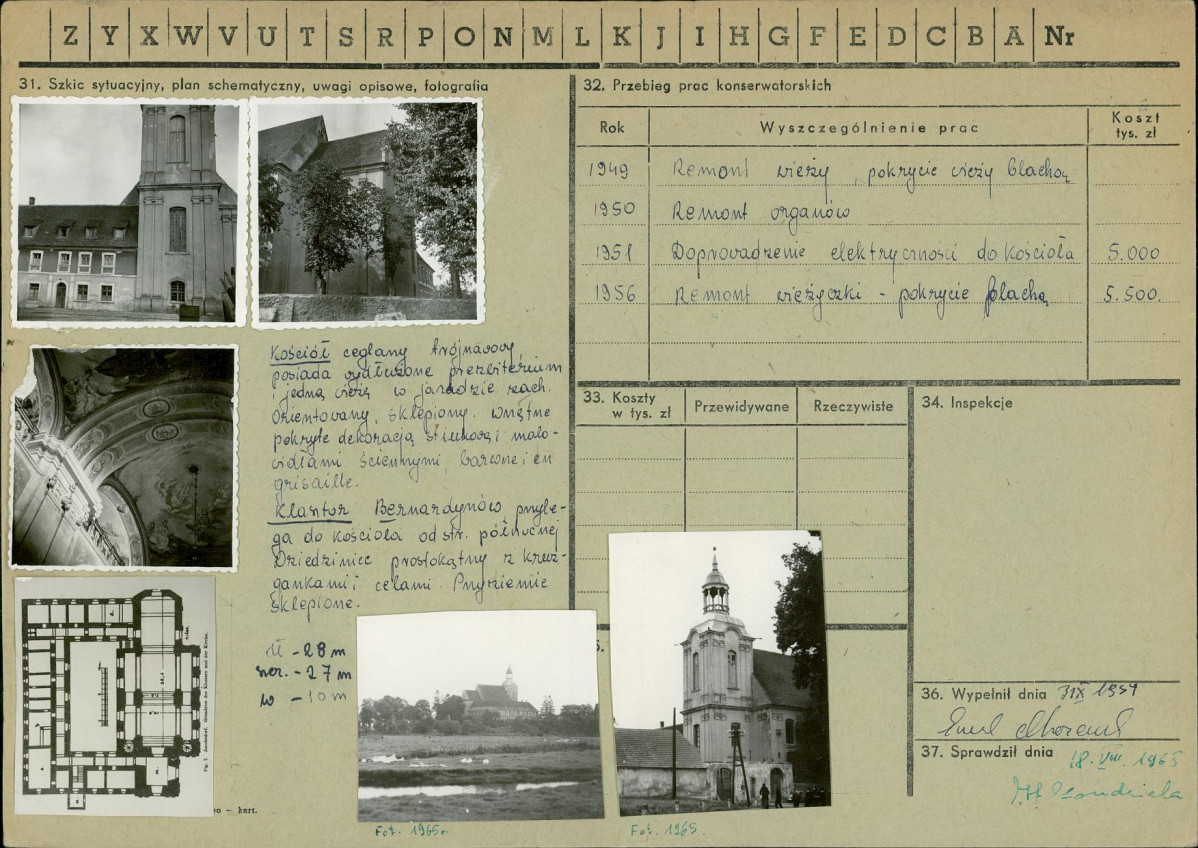 Z Y X W V U T S R P O N M L K J I H G F E D C B A Nr
31. Szkic sytuacyjny, plan schematyczny, uwagi opisowe, fotografia
Kościół ceglany trójnawowy,
posiada wydłużone prezbiterium
i jedną wieżę w fasadzie zach.
Orientowany, sklepiony. Wnętrze
pokryte dekoracją stiukową i malo-
widłami ściennymi, barwne i en
grisaille.
Klasztor Bernardynów przyle-
ga do kościoła od str. północnej
Dziedziniec prostokątny z kruż-
gankami i celami. Przyziemie
sklepione.
dł - 28 m
szer. - 27 m
w - 10 m
Fot. 1965 r.
Fot. 1965.
32. Przebieg prac konserwatorskich
Rok Wyszczególnienie prac Koszt tys. zł
1949 Remont wieży pokrycie wieży blachą
1950 Remont organów
1951 Doprowadzenie elektryczności do kościoła 5.000
1956 Remont wieżyczki - pokrycie blachą 5.500.
33. Koszty w tys. zł Przewidywane Rzeczywiste
34. Inspekcje
36. Wypełnił dnia
37. Sprawdził dnia 18. VIII. 1965